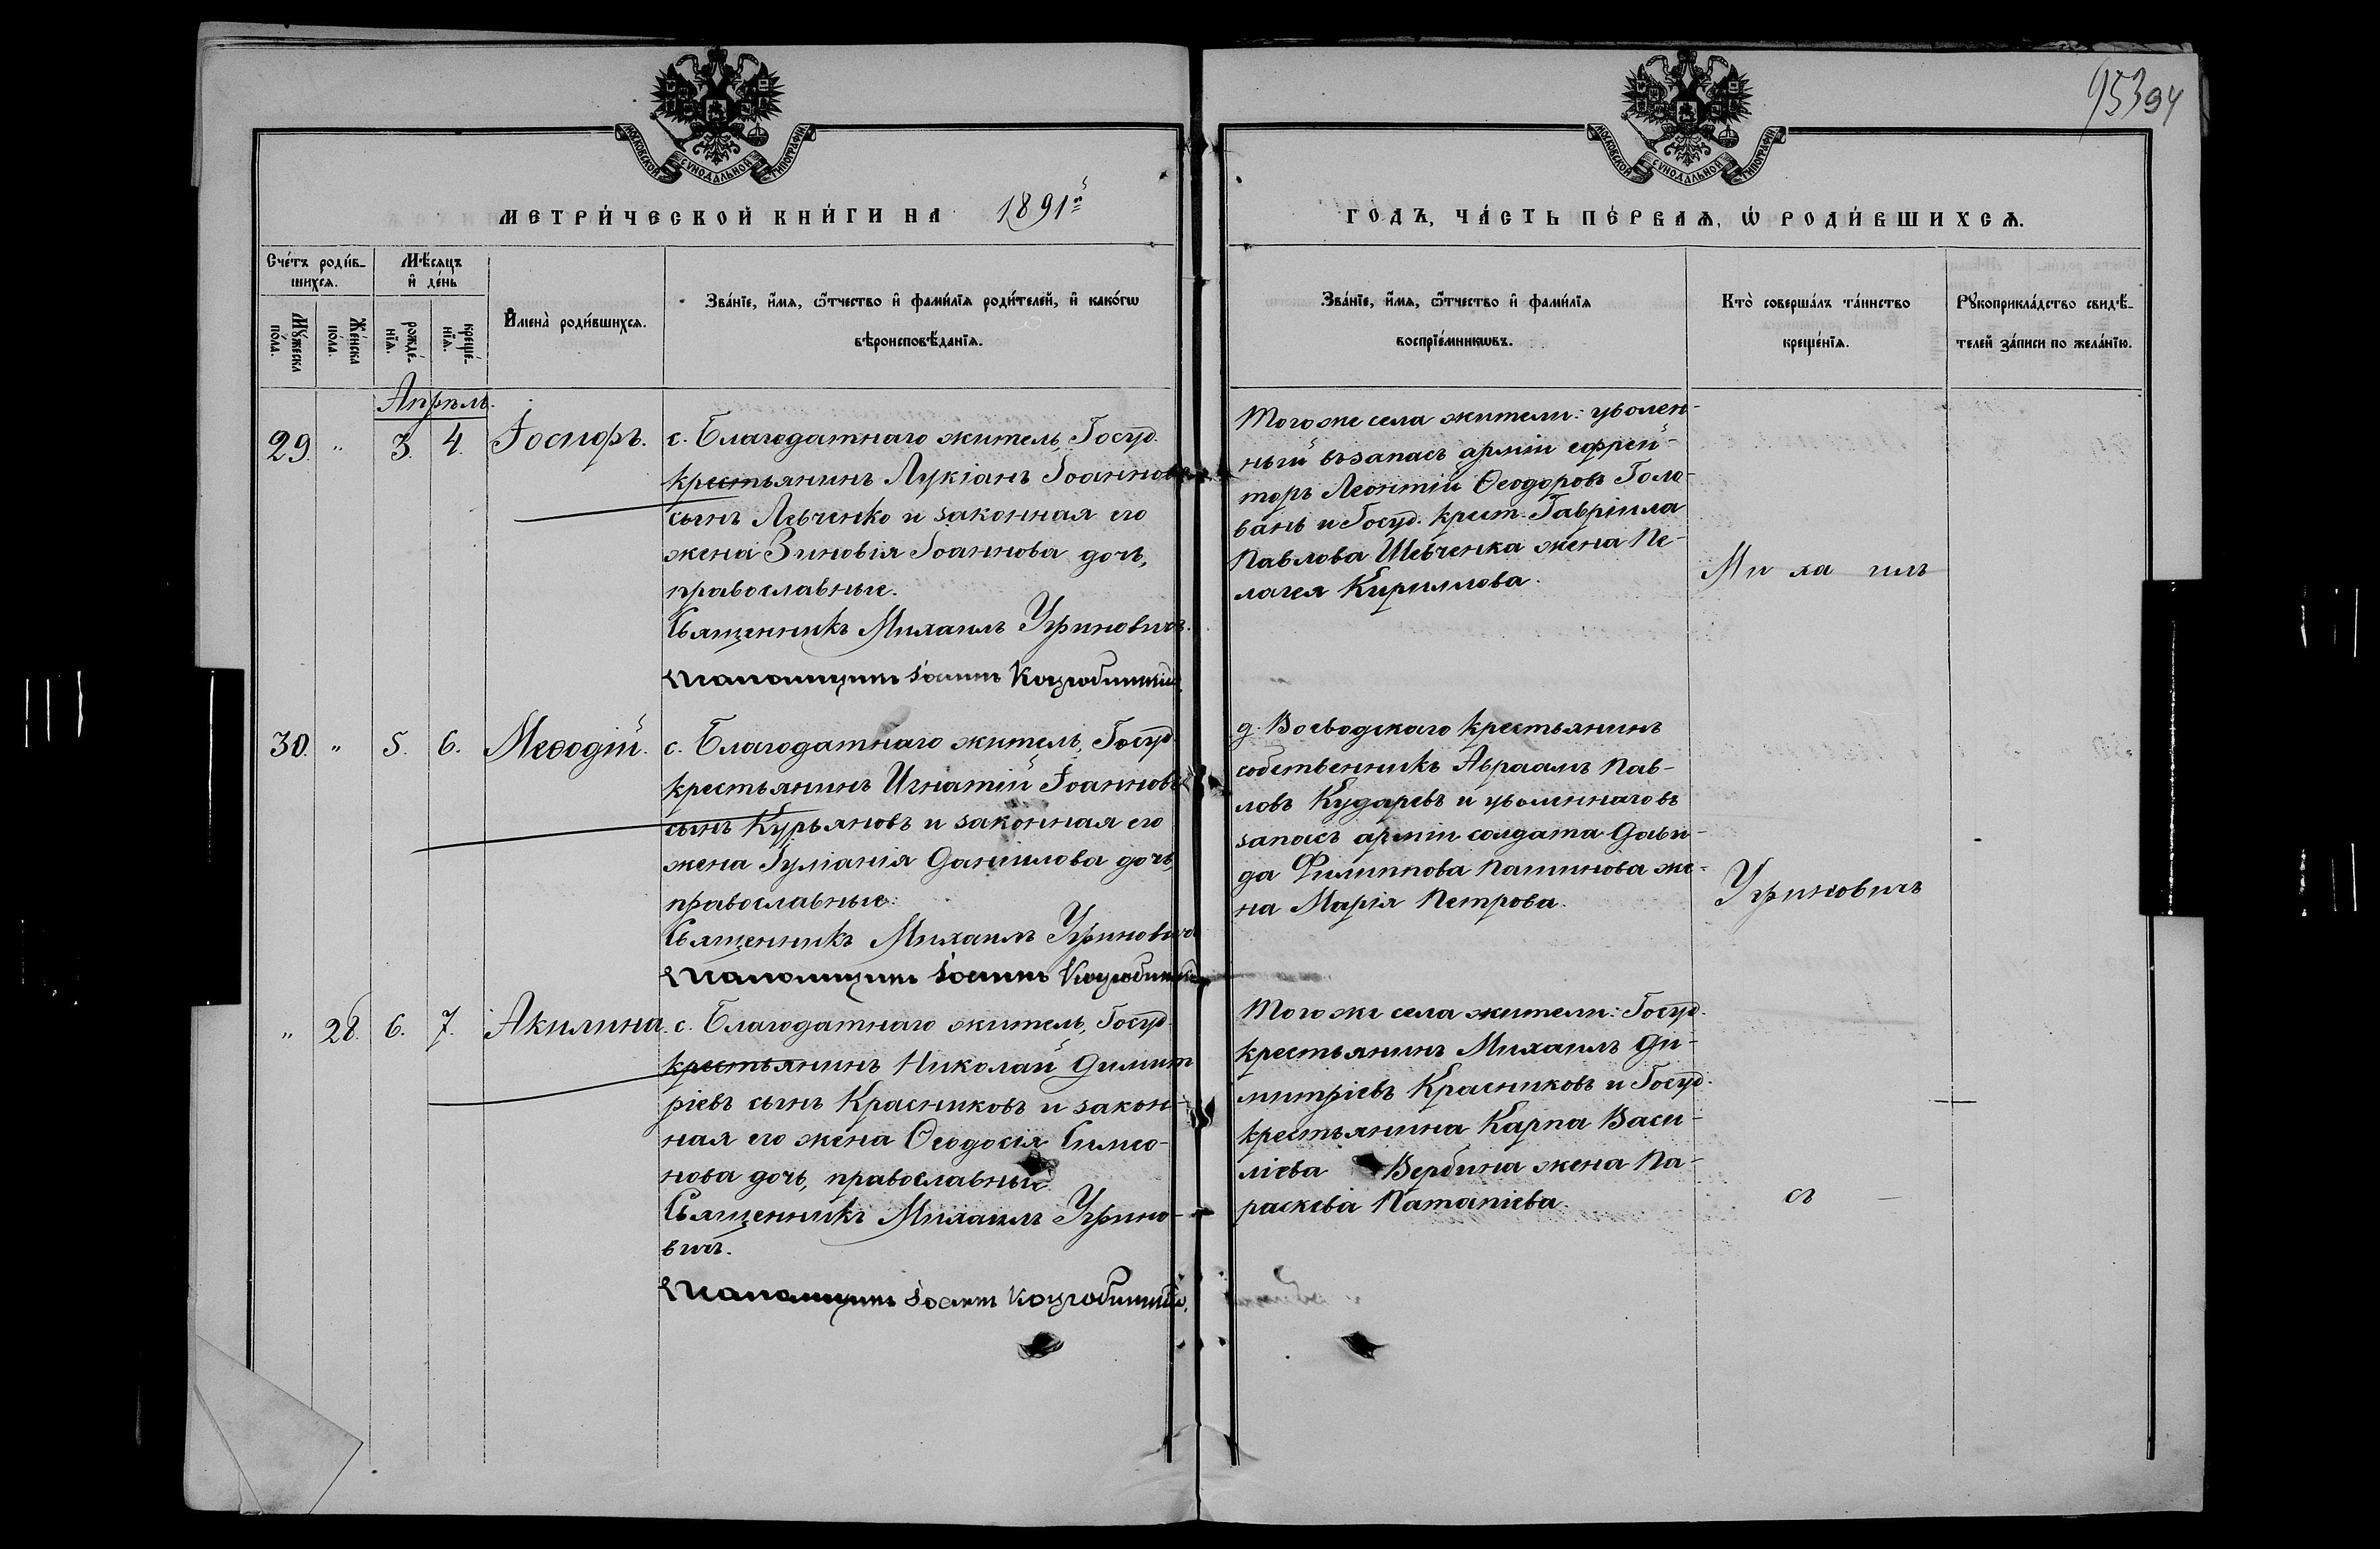 95394
МОСКОВСКОЙ СѴНОДАЛЬНОЙ ТИПОГРАФІИ
МОСКОВСКОЙ СѴНОДАЛЬНОЙ ТИПОГРАФІИ
МЕТРИ́ЧЕСКОЙ КНИ́ГИ НА 1891й
ГО́ДЪ, ЧА́СТЬ ПЕ́РВАѦ, Ѡ҆ РОДИ́ВШИХСѦ.
Сче́тъ роди́в-
шихсѧ.
Мꙋ́жеска
по́ла.
Же́нска
по́ла.
Мѣ́сѧцъ
и҆ де́нь
рожде́-
нїѧ.
креще́-
нїѧ.
И҆мена̀ роди́вшихсѧ.
Зва́нїе, и҆́мѧ, ѻ҆́тчество и҆ фами́лїѧ роди́телей, и҆ како́гѡ
вѣроисповѣ́данїѧ.
Зва́нїе, и҆́мѧ, ѻ҆́тчество и҆ фами́лїѧ
воспрїе́мникѡвъ.
Кто̀ соверша́лъ та́инство
креще́нїѧ.
Рꙋкоприкла́дство свидѣ́-
телей за́писи по жела́нїю.
Апрѣль.
29. " 3. 4. Іосифъ.
с. Благодатнаго житель, Госуд.
крестьянинъ Лукіанъ Іоанновъ
сынъ Левченко и законная его
жена Зиновія Іоаннова дочь,
православные.
Священникъ Михаилъ Угриновичъ.
Псаломщикъ
Того же села жители: уволен-
ный въ запасъ арміи ефрей-
торъ Леонтій Ѳеодоровъ Голо-
вань и Госуд. крест. Гавріила
Павлова Шевченка жена Пе-
лагея Кириллова.
Михаилъ
30. " 5. 6. Меѳодій.
с. Благодатнаго житель, Госуд.
крестьянинъ Игнатій Іоанновъ
сынъ Курьяновъ и законная его
жена Іуліанія Даніилова дочь,
православные.
Священникъ Михаилъ Угриновичъ
Псаломщикъ
д. Воеводскаго крестьянинъ
собственникъ Авраамъ Пав-
ловъ Кударевъ и уволеннаго въ
запасъ арміи солдата Дави-
да Филиппова Пашинова же-
на Марія Петрова.
Угриновичъ
" 28. 6. 7. Акилина.
с. Благодатнаго житель, Госуд.
крестьянинъ Николай Димит
ріевъ сынъ Красниковъ и закон-
ная его жена Ѳеодосія Симео-
нова дочь, православные
Священникъ Михаилъ Угрино-
вичъ.
Псаломщикъ
Того же села жители: Госуд.
крестьянинъ Михаилъ Ди-
митріевъ Красниковъ и Госуд.
крестьянина Карпа Васи-
ліева Вербина жена Па-
раскева Патапіева.
съ